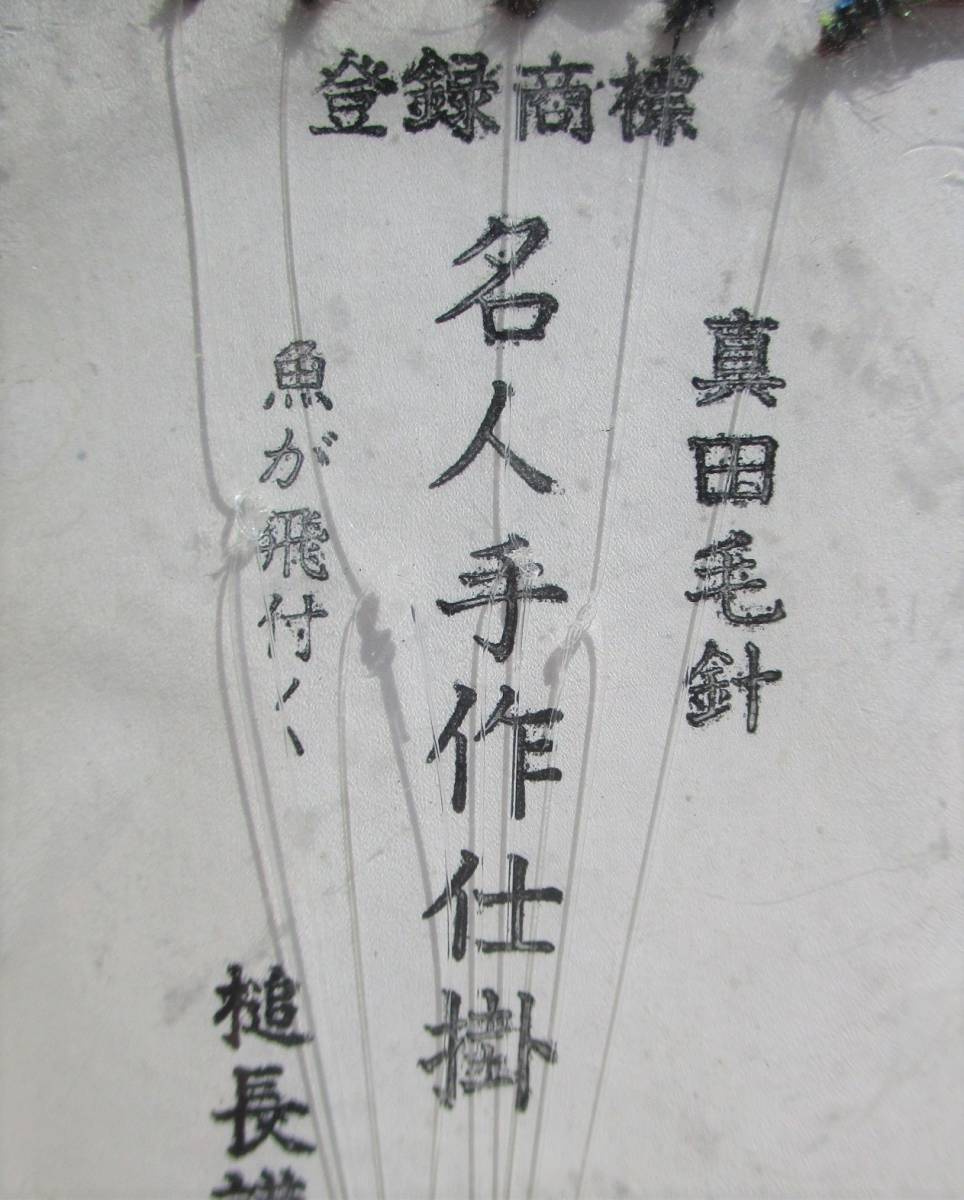 登録商標
真田毛針
名人手作仕掛
魚が飛付く
槌長